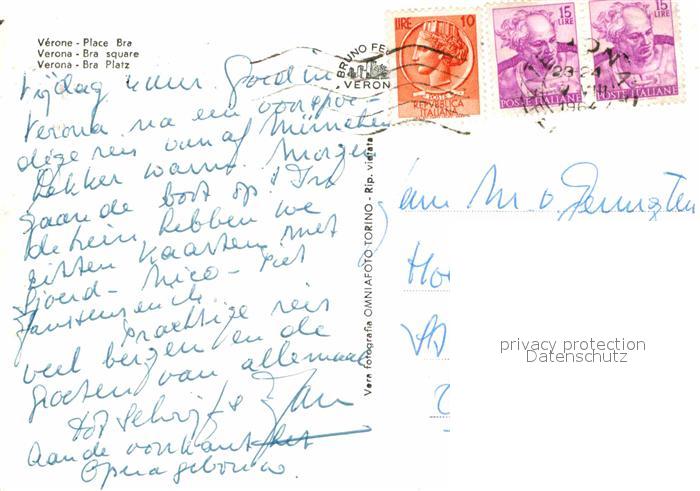 Vérone - Place Bra
Verona - Bra square
Verona - Bra Platz
Vrijdag uur. Goed in
Verona na een voorspoe-
dige reis vanaf München
Lekker warm. Morgen
gaan de boot op! In
de trein hebben we
zitten kaarten met
Sjoerd - Nico - Piet
Prachtige reis
veel bergen en de
groeten van allemaal
tot schrijfs Jan
Aan de voorkant het
Operagebouw
Vera fotografia OMNIAFOTO-TORINO - Rip. vietata
BRUNO
VERON
LIRE 10
POSTE
REPVBBLICA
ITALIANA
15
LIRE
POSTE ITALIANE
15
LIRE
POSTE ITALIANE
23-24
196
Fam
privacy protection
Datenschutz